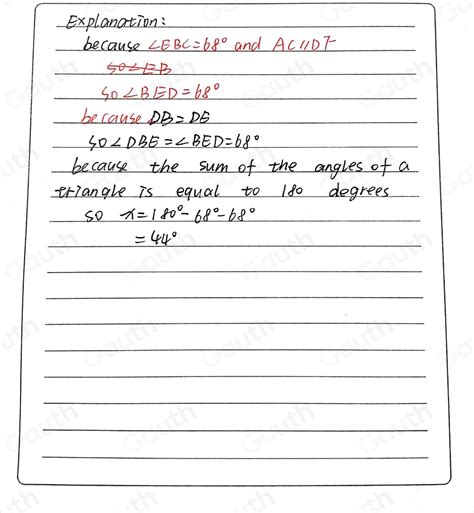 Explanation:
because ∠EBC=68° and AC//DF
so∠EB
so∠BED=68°
because DB=DE
so∠DBE=∠BED=68°
because the sum of the angles of a
triangle is equal to 180 degrees
so x=180°-68°-68°
=44°